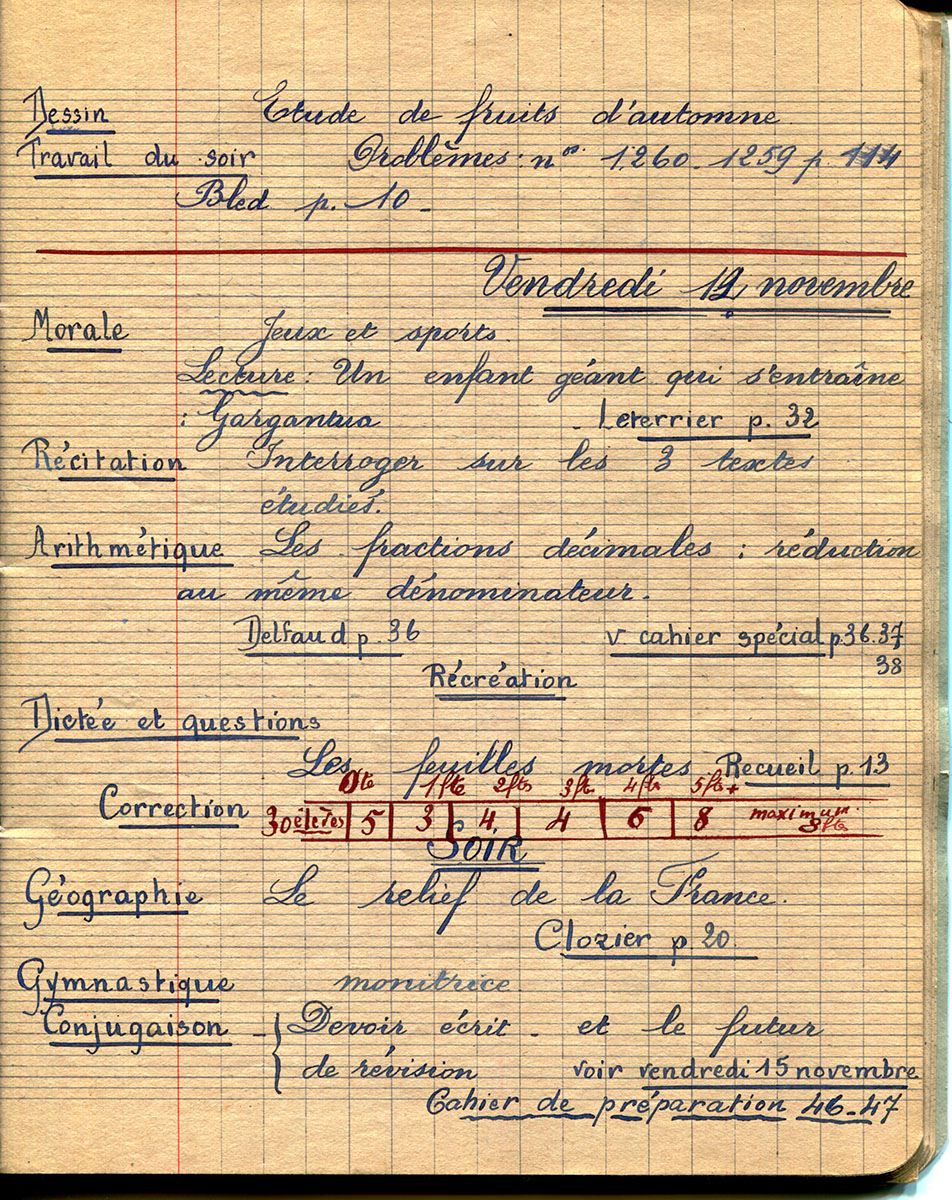 Dessin Etude de fruits d'automne
Travail du soir Problèmes : nos 1260 - 1259 p. 114
Bled p. 10 -
Vendredi novembre
Morale Jeux et sports.
Lecture : Un enfant géant qui s'entraîne
: Gargantua - Leterrier p. 32
Récitation Interroger sur les 3 textes
étudiés.
Arithmétique Les fractions décimales : réduction
au même dénominateur.
Delfaud p. 36 v cahier spécial p. 36.37
38
Récréation
Dictée et questions
Les feuilles mortes Recueil p. 13
0fte 1 fte 2 fts 3 fts 4 fts 5 fts +
Correction 30 élèves 5 3 4 4 6 8 maximum
8 fts
SOIR
Géographie Le relief de la France.
Clozier p 20.
Gymnastique monitrice
Conjugaison - { Devoir écrit - et le futur
de révision voir vendredi 15 novembre
Cahier de préparation 46-47